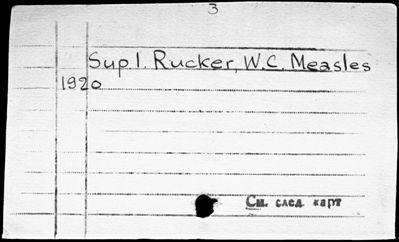 3
Supl. Rucker, W.C. Measles
1920
См. след. карт